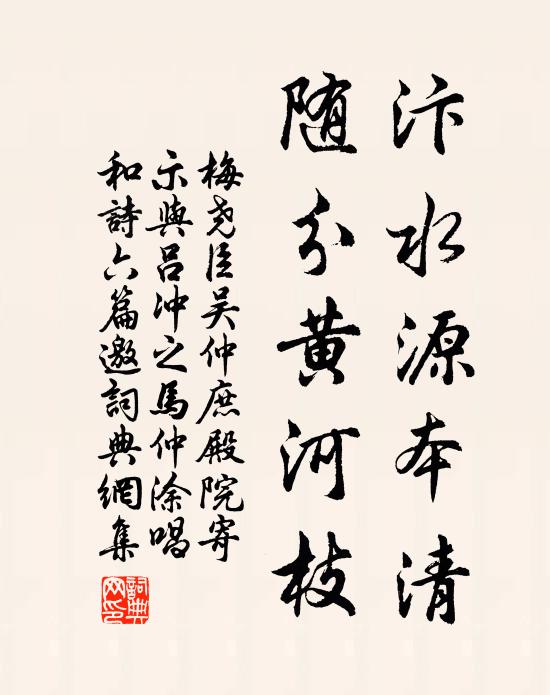 汴水源本清
随分黄河枝
梅尧臣吴仲庶殿院寄
示與吕沖之馬仲涂唱
和詩六篇邀詞典網集
詞典網印